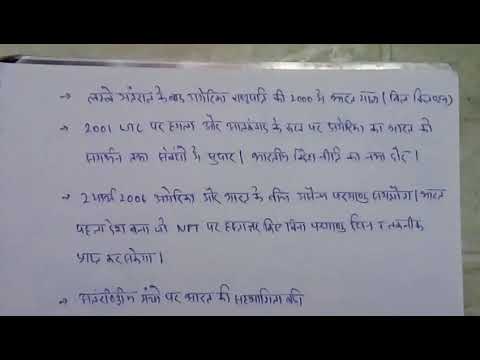 → लम्बे अंतराल के बाद अमेरिका राष्ट्रपति की 2000 में भारत यात्रा (बिल क्लिंटन)
→ 2001 WTC पर हमला और आतंकवाद के मुद्दे पर अमेरिका का भारत को
समर्थन तथा संबंधों में सुधार। भारतीय विदेश नीति का नया दौर।
→ 2 मार्च 2006 अमेरिका और भारत के बीच असैन्य परमाणु समझौता। भारत
पहला देश बना जो NPT पर हस्ताक्षर किए बिना परमाणु तकनीक
प्राप्त कर सकेगा।
→ अंतर्राष्ट्रीय मंचों पर भारत की सहभागिता बढ़ी